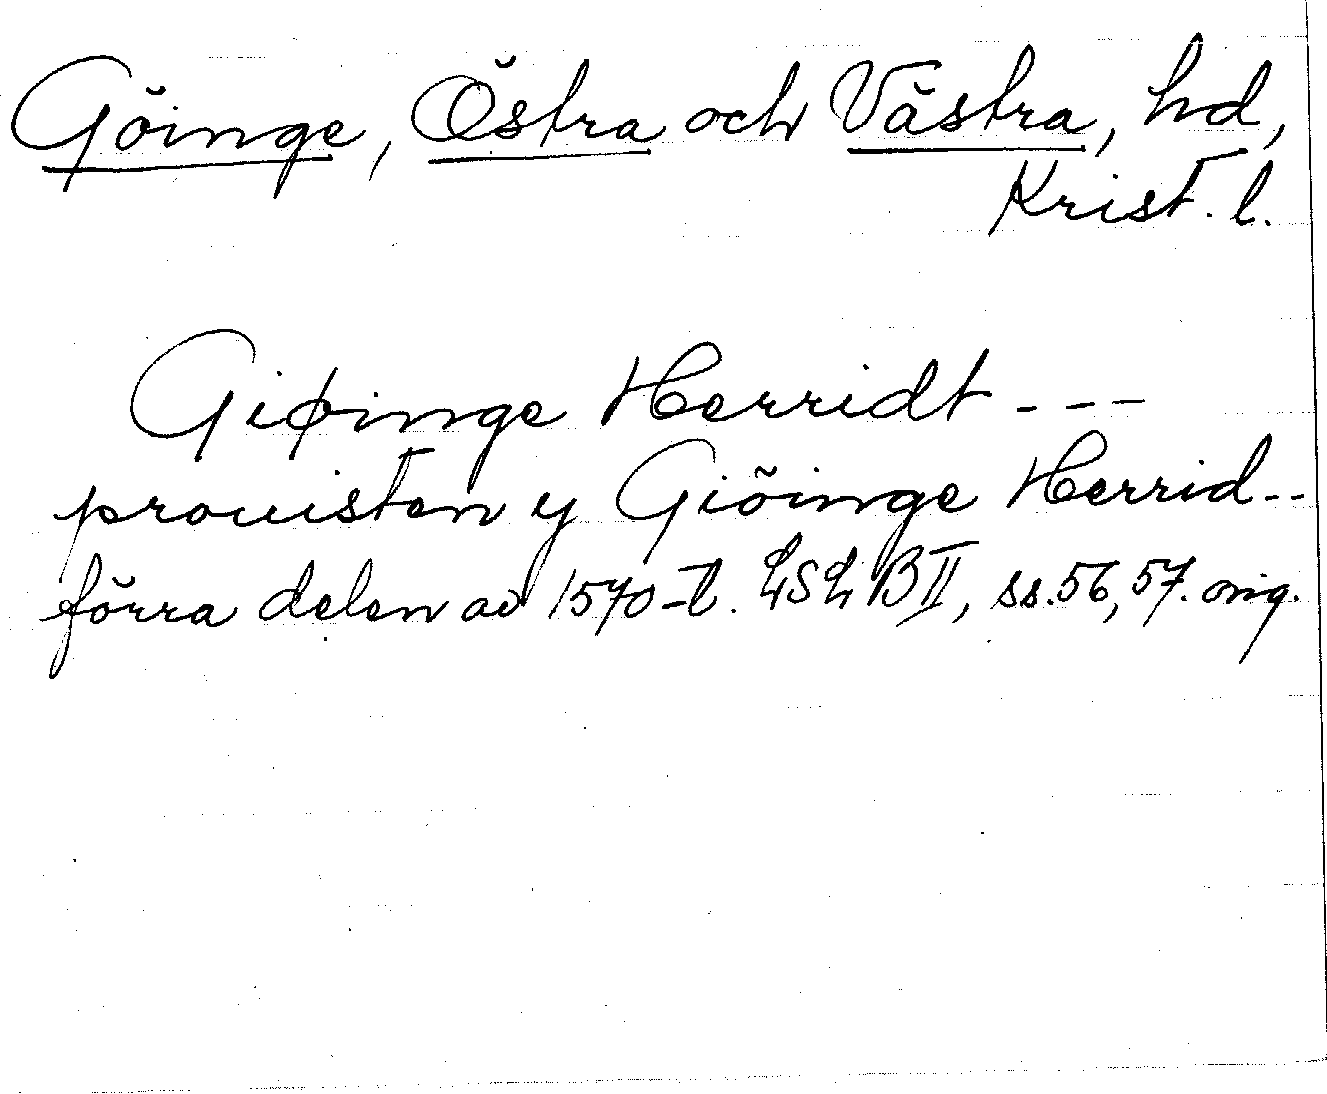 Göinge, Östra och Västra, hd,
Krist. l.
Giøinge Herridt ---
prouisten y Giöinge Herrid--
förra delen av 1570-t. LSL BII, ss.56,57. orig.